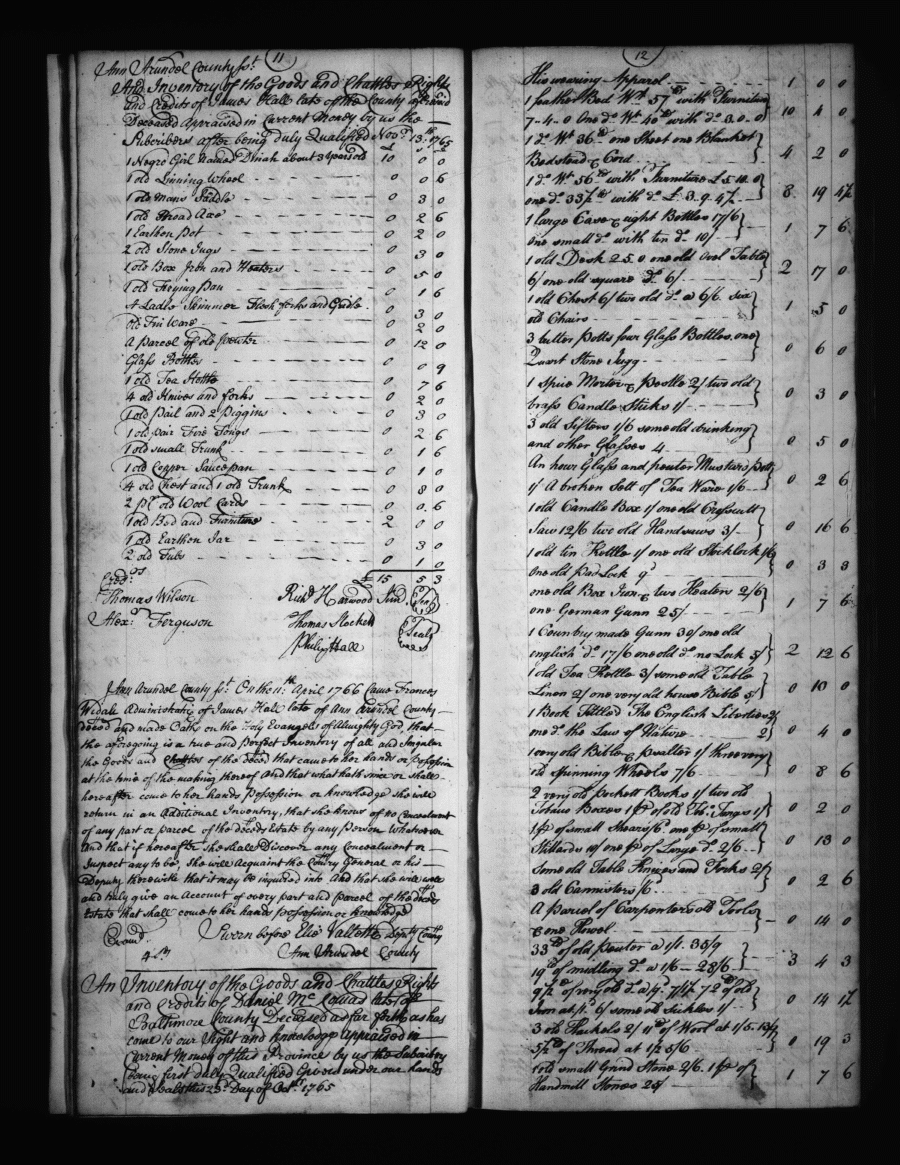 11
Ann Arundel County sst.
An Inventory of the Goods and Chattles Rights
and Credits of James Hall late of the County aforesaid
Deceased Appraised in Current Money by us the
Subcribers after being duly Qualified Novr. 13th 1765
1 Negro Girl Named Dinah about 3 years old 10 0 0
1 old Linning Wheel 0 0 6
1 old Mans Saddle 0 3 0
1 old Broad Axe 0 2 6
1 Earthen Pot 0 2 0
2 old Stone Jugs 0 3 0
1 old Box Iron and Heaters 0 5 0
1 old Frying Pan 0 1 6
1 Ladle Skimmer Flesh forks and Gridle 0 3 0
old Tin Ware 0 2 0
A parcel of old Pewter 0 12 0
Glass Bottles 0 0 9
1 old Tea Kettle 0 7 6
4 old Knives and forks 0 2 0
1 old Pail and 2 Piggins 0 3 0
1 old pair Fire Tongs 0 2 6
1 old small Trunk 0 1 6
1 old Copper Saucepan 0 1 0
4 old Chest and 1 old Trunk 0 8 0
2 pr. old Wool Cards 0 0 6
1 old Bed and Furniture 2 0 0
1 old Earthen Jar 0 3 0
2 old Tubs 0 1 0
Credrs £ 15 5 3
Thomas Wilson Richd Harwood Jund Seal
Alexr. Ferguson Thomas Seal
Philip Hall
Ann Arundel County sst. On the 11th April 1766 Came Frances
Administratrix of James Hall late of Ann Arundel County
deced and made Oath on the Holy Evangels of Almighty God, that
the aforegoing is a true and Perfect Inventory of all and Singular
the Goods and Chattles of the Deced that came to her hands or Possession
at the time of the making thereof And that what hath since or shall
hereafter come to her hands Possession or knowledge she will
return in an Additional Inventory, that she knows of no Concealment
of any part or parcel of the deceds Estate by any Person Whatsoever
And that if hereafter she shall Discover any Concealment or
Suspect any to be, she will acquaint the Comry General or his
Deputy therewith that it may be inquired into And that she will well
and truly give an Account of every part and parcel of the deceds
Estate that shall come to her hands Possession or knowledge
Sworn before Elie Vallette Depty Comry
Ann Arundel County
An Inventory of the Goods and Chattles Rights
and Credits of Daniel Mc late of
Baltimore County Deceased as far forth as has
come to our Sight and knowledge Appraised in
Current Money of this Province by us the Subscribers
being first duly Qualified Given under our hands
and Seals this 23d Day of Octr. 1765
12
His wearing Apparel 1 0 0
1 feather Bed Wt. 57 lb with Furniture
7-4-0 One do. Wt. 40 lb with do. 3-0-0 10 4 0
1 do. Wt. 36 lb one Sheet one Blanket
Bedstead & Cord 4 2 0
1 do. Wt. 56 lb with Furniture £ 5-10-0
one do. 33½ lb with do. £ 3-9-4½ 8 19 4½
1 large Case & eight Bottles 17/6
One small do. with ten do. 10/ 1 7 6
1 old Desk 2.5.0 one old Ovel Table
6/ one old square do. 6/ 2 17 0
1 old Chest 6/ two old do. a 6/6 six
old Chairs 1 5 0
3 butter Potts four Glass Bottles one
Quart Stone Jugg 0 6 0
1 Spice Morter & Pestle 2/ two old
brass Candle Sticks 1/ 0 3 0
3 old Sifters 1/6 some old drinking
and other Glasses 4 0 5 0
An hour Glass and pewter Musters Pott
1/ A broken Sett of Tea Ware 1/6 0 2 6
1 old Candle Box 1/ one old Crosscutt
Saw 12/6 two old Handsaws 3/ 0 16 6
1 old tin Kettle 1/ one old Stocklock 1/6
one old PadLock 9d 0 3 3
one old Box Iron & two Heaters 2/6
one German Gunn 25/ 1 7 6
1 Country made Gunn 30/ one old
english do. 17/6 one old do. no Lock 5/ 2 12 6
1 old Tea Kettle 3/ some old Table
Linen 2/ one very old house Bible 5/ 0 10 0
1 Book Tittled The English Liberties 2/
one do. the Law of Nature 2/ 0 4 0
1 very old Bible & psalter 1/ three very
old Spinning Wheels 7/6 0 8 6
2 very old Pockett Books 1/ two old
Tobaco Boxes 1 pr of old Tongs 1/ 0 2 0
1 pr of small Shears one pr of small
Stillards one pr of Large do. 2/6 0 13 0
Some old Table Knives and Forks 2/
3 old Cannisters /6 0 2 6
A Parcel of Carpenters old Tools
& one Howel 0 14 0
33 lb of old pewter a 1/1. 35/9
19 lb of do. a 1/6 28/6 3 4 3
9½ lb of very old do. a 9d 7/1½ 72 lb of old
Iron at 1d. 6/ some old Sickles 1/ 0 14 1½
3 old Hackels 2/ 11 lb of Wool at 1/5
5½ lb of Thread at 1/2 5/6 0 19 3
1 old small Grind Stone 2/6 1 pr of
Handmill Stones 25/ 1 7 6